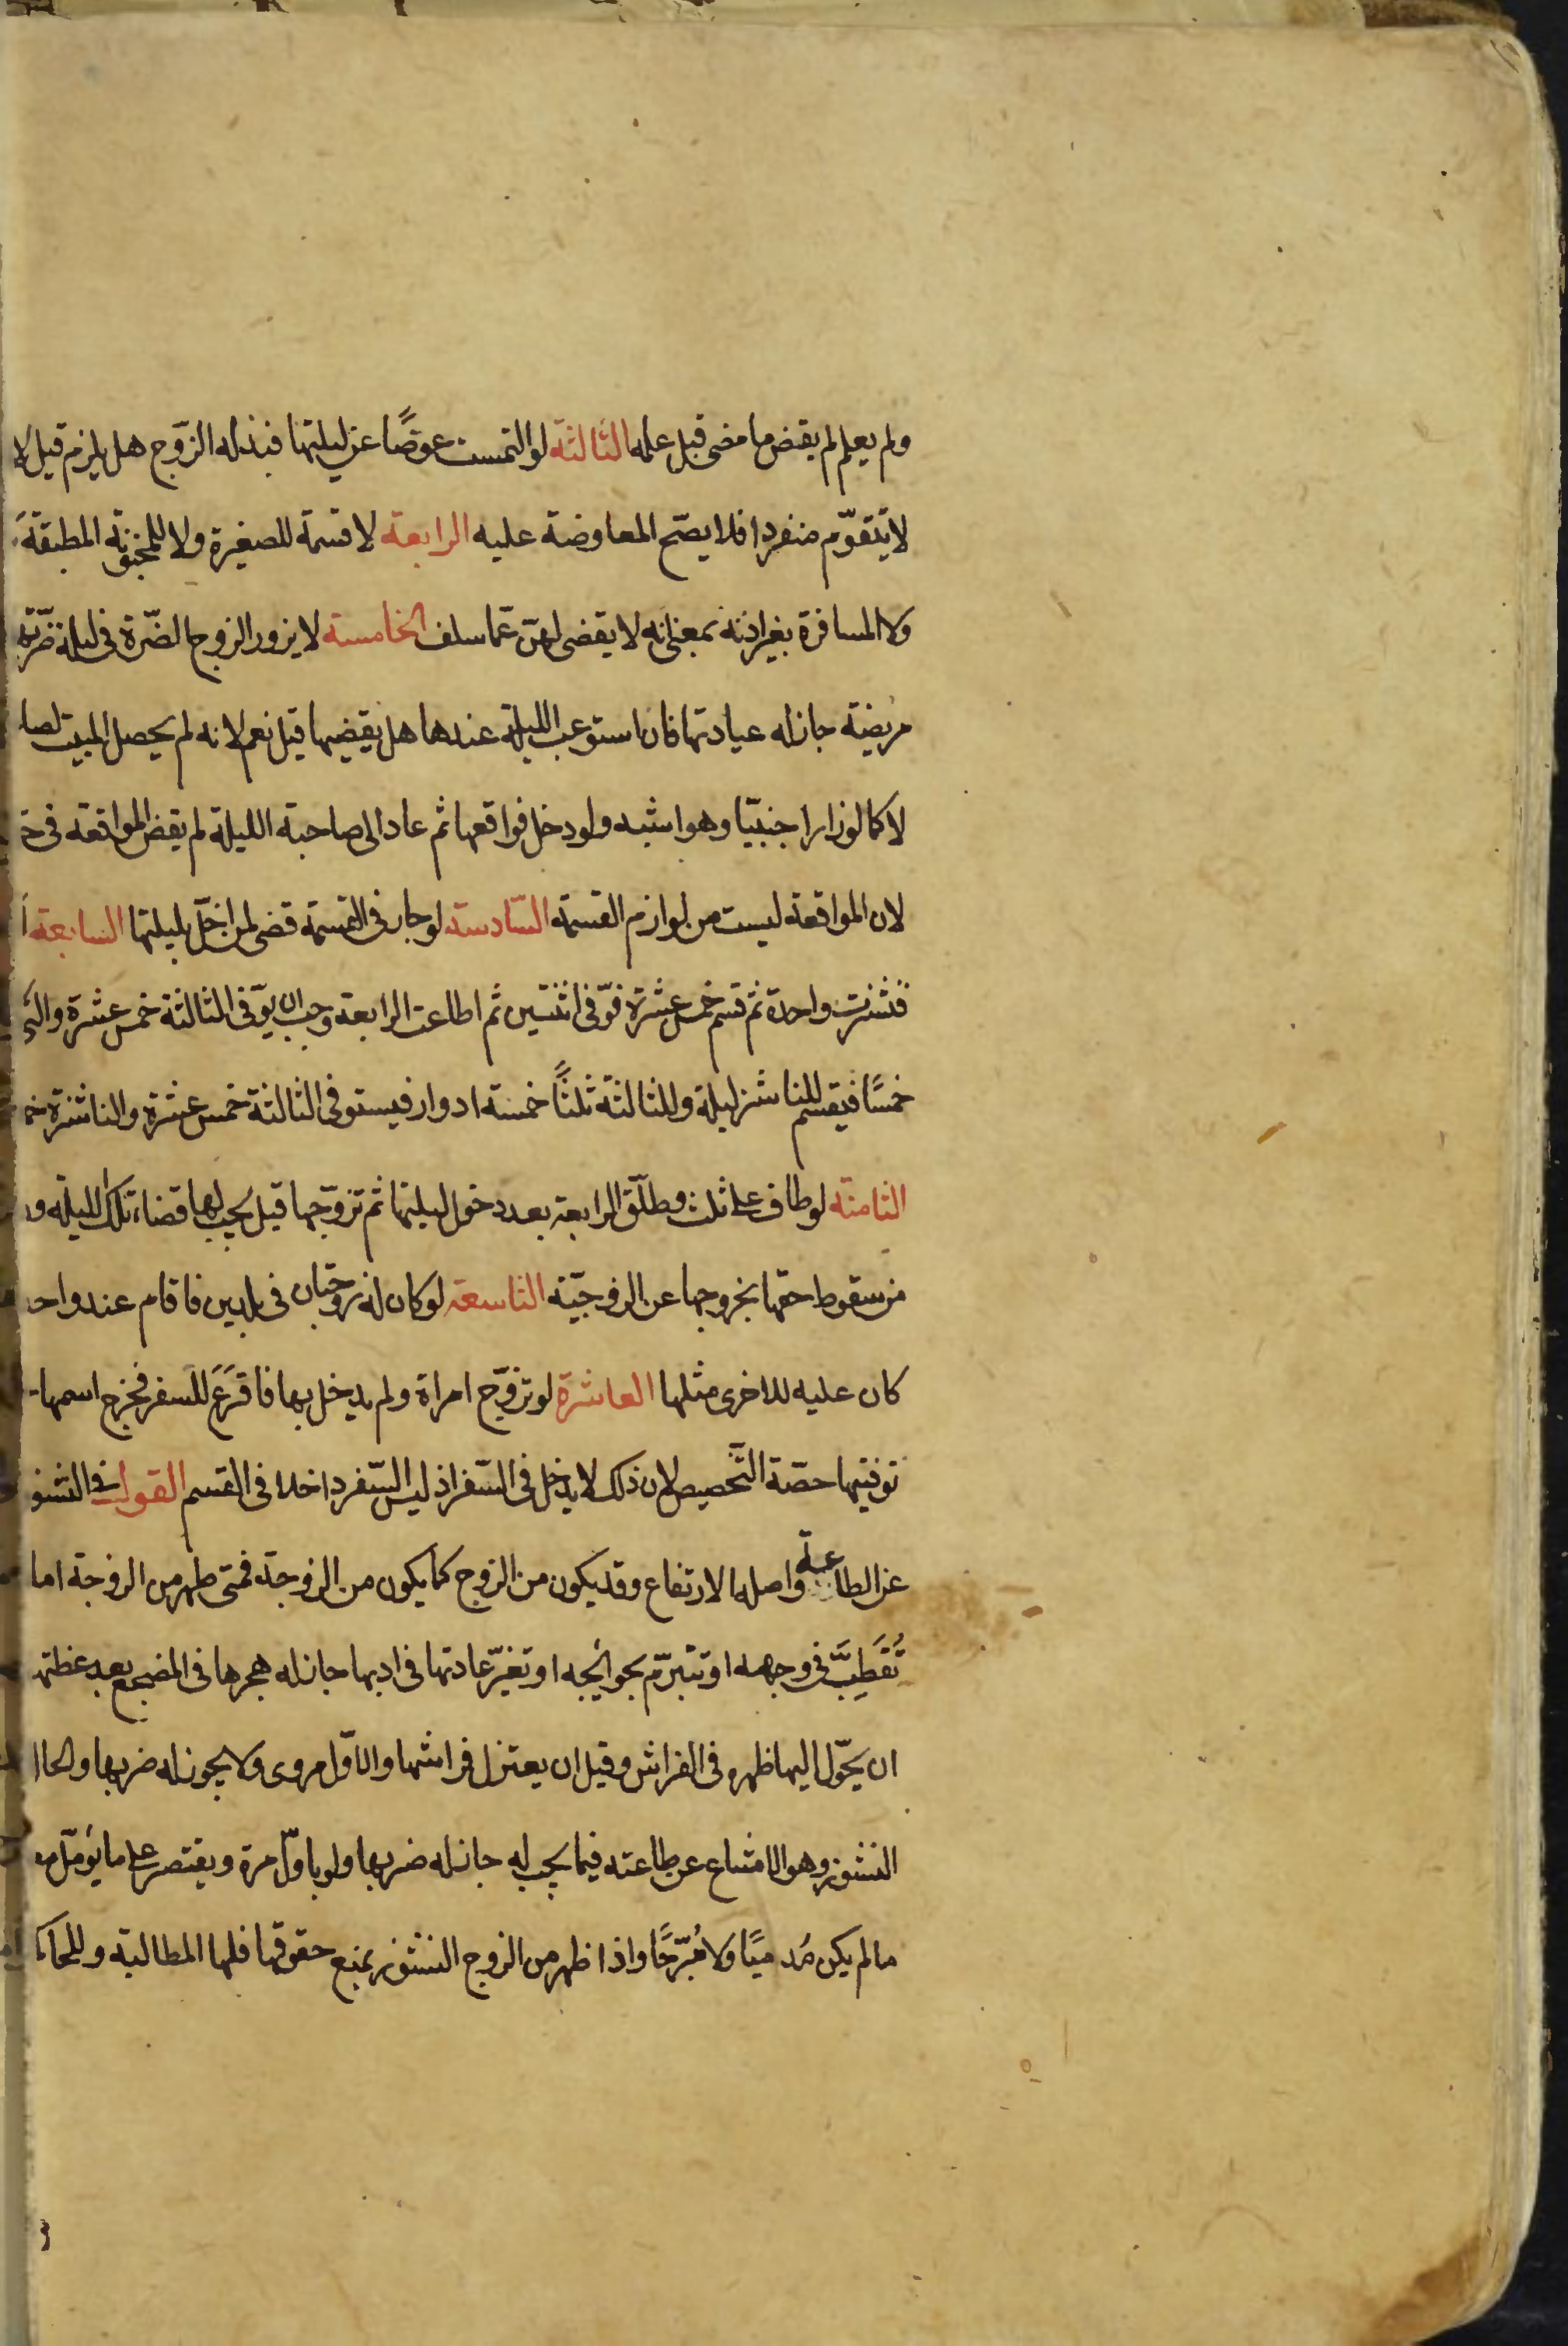 ولم يعلم لم يقض ما مضى قبل علمه الثالثة لو التمست عوضًا عن ليلتها فبذله الزّوج هل يلزم قيل لا
لا يتقوّم منفردا فلا يصحّ المعاوضة عليه الرابعة لا قسمة للصغيرة ولا للمجنونة المطبقة
ولا المسافرة بغير اذنه بمعنى انه لا يقضى لهنّ عمّا سلف الخامسة لا يزور الزوج الضّرة فى ليلة ضرّتها
مريضة جاز له عيادتها فان استوعب الليلة عندها هل يقضيها قيل نعم لانه لم يحصل المبيت لصا
لا كما لو زار اجنبيّا وهو اشبه ولو دخل فواقعها ثم عاد الى صاحبة الليلة لم يقض المواقعة فى
لان المواقعة ليست من لوازم القسمة السّادسة لو جار فى القسمة قضى لمن اخلّ بليلتها السابعة
فنشزت واحدة ثم قسم خمس عشرة فوّفى اثنتين ثم اطاعت الرابعة وجب ان يوّفى الثالثة خمس عشرة
خمسًا فيقسم للناشز ليلة وللثالثة ثلثًا خمسة ادوار فيستوفى الثالثة خمس عشرة والناشزة
الثامنة لو طاف على ثلث وطلّق الرابعة بعد دخول ليلتها ثم تزوّجها قيل يجب لها قضاء تلك الليلة
من سقوط حقها بخروجها عن الزوجيّة التاسعة لو كان له زوجتان فى بلدين فاقام عند واحد
كان عليه للاخرى مثلها العاشرة لو تزوّج امراة ولم يدخل بها فاقرَعَ للسفر فخرج اسمها
توفيتها حصّة التّخصيص لان ذلك لا يدخل فى السّفر اذ ليس السّفر داخلا فى القسم القول فى النشو
عن الطاعة واصله الارتفاع وقد يكون من الزوج كما يكون من الزوجة فمتى ظهر من الزوجة اما
تُقَطِبَّ فى وجهه او تتبرّم بحوائجه او تغيّر عادتها فى ادبها جاز له هجرها فى المضجع بعد عظتها
ان يحوّل اليها ظهره فى الفراش وقيل ان يعتزل فراشها والاوّل مروى ولا يجوز له ضربها والحا
النشوز وهو الامتناع عن طاعته فيما يجب له جاز له ضربها ولو باوّل مرة ويقتصر على ما يؤمّل
مالم يكن مُدميًا ولا مُبّرحًا واذا ظهر من الزوج النشوز بمنع حقوقها فلها المطالبة وللحاكم